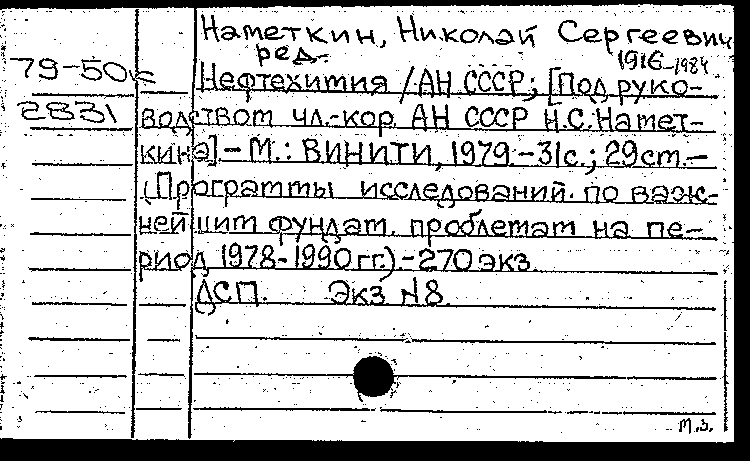 Наметкин, Николай Сергеевич
ред.
1916-1984
79-50к
2831
Нефтехимия / АН СССР; [Под руко-
водством чл.-кор. АН СССР Н.С. Намет-
кина]. - М.: ВИНИТИ, 1979. - 31с.; 29см. -
(Программы исследований по важ-
нейшим фундам. проблемам на пе-
риод 1978-1990 гг.). - 270 экз.
ДСП. Экз N8.
м.з.